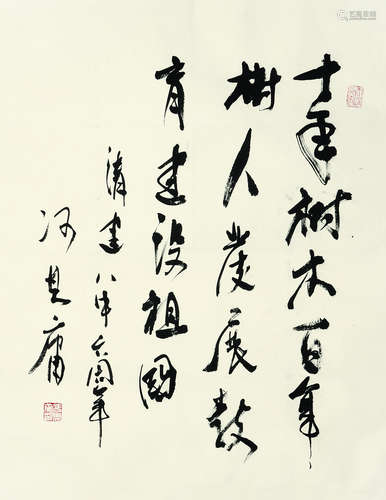 十年樹木百年
樹人發展教
育建設祖國
建八中六周年
冯其庸